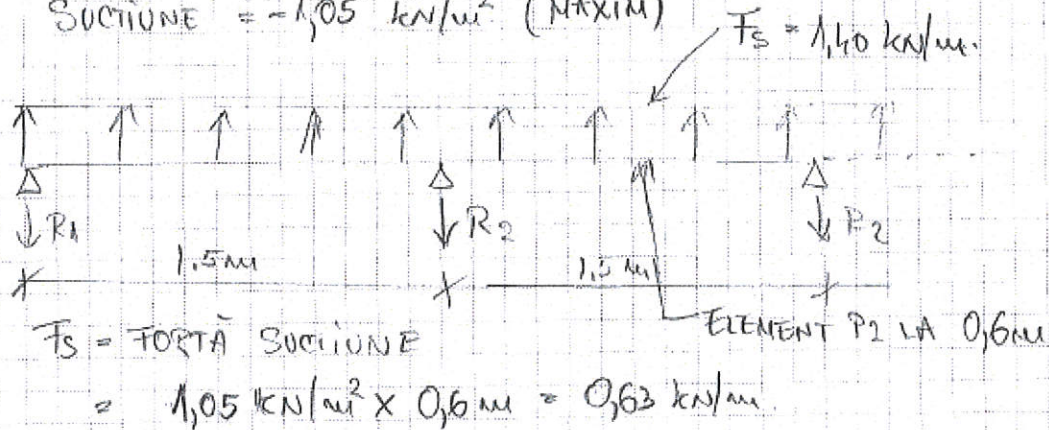 SUCȚIUNE = -1,05 kN/m² (MAXIM)
Fs = 1,40 kN/m.
R1
R2
R2
1.5m
1.5m
ELEMENT P2 LA 0,6m
Fs = FORȚĂ SUCȚIUNE
= 1,05 kN/m² x 0,6m = 0,63 kN/m.